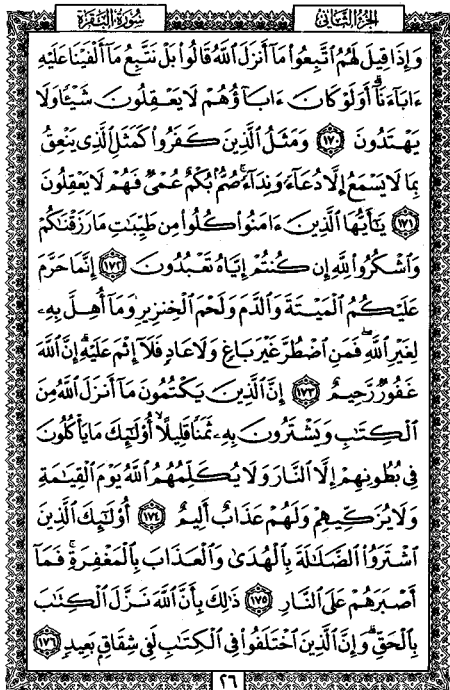 سُورَةُ البَقَرَةِ
الجُزءُ الثَّانِي
وَإِذَا قِيلَ لَهُمُ ٱتَّبِعُوا۟ مَآ أَنزَلَ ٱللَّهُ قَالُوا۟ بَلْ نَتَّبِعُ مَآ أَلْفَيْنَا عَلَيْهِ
ءَابَآءَنَآ ۗ أَوَلَوْ كَانَ ءَابَآؤُهُمْ لَا يَعْقِلُونَ شَيْـًٔا وَلَا
يَهْتَدُونَ ١٧٠ وَمَثَلُ ٱلَّذِينَ كَفَرُوا۟ كَمَثَلِ ٱلَّذِى يَنْعِقُ
بِمَا لَا يَسْمَعُ إِلَّا دُعَآءً وَنِدَآءً ۚ صُمٌّۢ بُكْمٌ عُمْىٌ فَهُمْ لَا يَعْقِلُونَ
١٧١ يَـٰٓأَيُّهَا ٱلَّذِينَ ءَامَنُوا۟ كُلُوا۟ مِن طَيِّبَـٰتِ مَا رَزَقْنَـٰكُمْ
وَٱشْكُرُوا۟ لِلَّهِ إِن كُنتُمْ إِيَّاهُ تَعْبُدُونَ ١٧٢ إِنَّمَا حَرَّمَ
عَلَيْكُمُ ٱلْمَيْتَةَ وَٱلدَّمَ وَلَحْمَ ٱلْخِنزِيرِ وَمَآ أُهِلَّ بِهِۦ
لِغَيْرِ ٱللَّهِ ۖ فَمَنِ ٱضْطُرَّ غَيْرَ بَاغٍ وَلَا عَادٍ فَلَآ إِثْمَ عَلَيْهِ ۚ إِنَّ ٱللَّهَ
غَفُورٌ رَّحِيمٌ ١٧٣ إِنَّ ٱلَّذِينَ يَكْتُمُونَ مَآ أَنزَلَ ٱللَّهُ مِنَ
ٱلْكِتَـٰبِ وَيَشْتَرُونَ بِهِۦ ثَمَنًا قَلِيلًا ۙ أُو۟لَـٰٓئِكَ مَا يَأْكُلُونَ
فِى بُطُونِهِمْ إِلَّا ٱلنَّارَ وَلَا يُكَلِّمُهُمُ ٱللَّهُ يَوْمَ ٱلْقِيَـٰمَةِ
وَلَا يُزَكِّيهِمْ وَلَهُمْ عَذَابٌ أَلِيمٌ ١٧٤ أُو۟لَـٰٓئِكَ ٱلَّذِينَ
ٱشْتَرَوُا۟ ٱلضَّلَـٰلَةَ بِٱلْهُدَىٰ وَٱلْعَذَابَ بِٱلْمَغْفِرَةِ ۚ فَمَآ
أَصْبَرَهُمْ عَلَى ٱلنَّارِ ١٧٥ ذَٰلِكَ بِأَنَّ ٱللَّهَ نَزَّلَ ٱلْكِتَـٰبَ
بِٱلْحَقِّ ۗ وَإِنَّ ٱلَّذِينَ ٱخْتَلَفُوا۟ فِى ٱلْكِتَـٰبِ لَفِى شِقَاقٍۭ بَعِيدٍ ١٧٦
٢٦